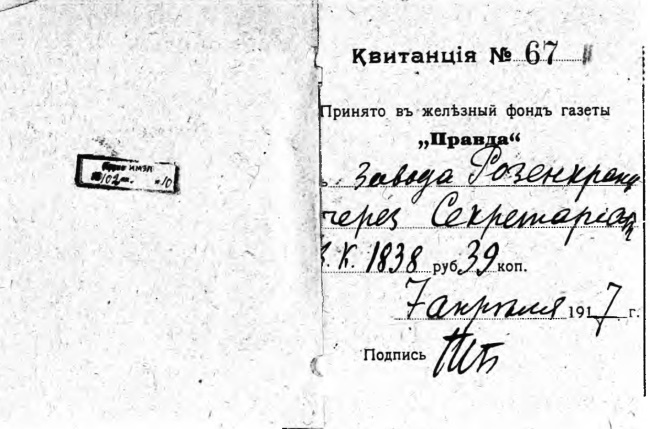 Квитанція № 67
Принято въ желѣзный фондъ газеты
„Правда“
Завода Розенкранц
через Секретариат
З. К. 1838 руб. 39 коп.
7 апреля 1917 г.
Подпись